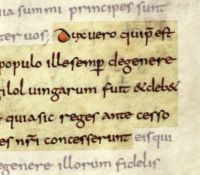 ua summi principes sunt
ter uos; Dixero quipe est
populo ille semp degenere
lol uingarum fuit & deb&
quia sic reges ante cesso
es nri concesserunt eisqui
egenere illorum fidelis